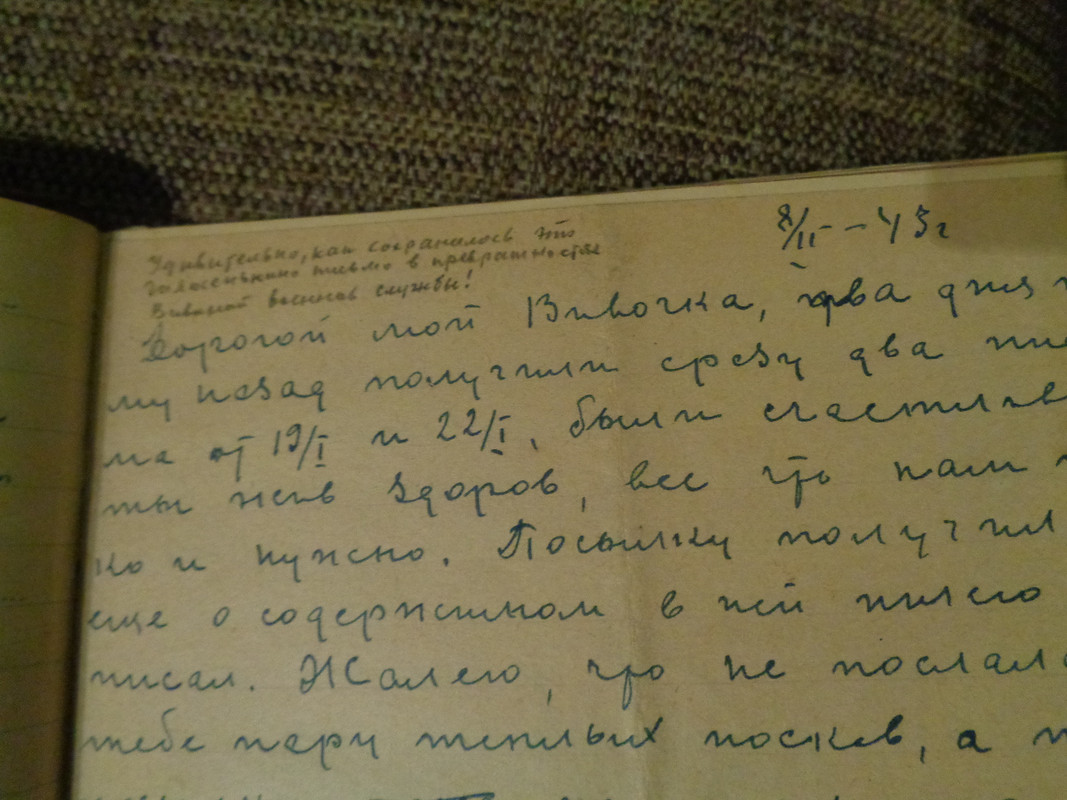 8/II – 43 г
Удивительно, как сохранилось это
письмо в превратностях
военной службы!
Дорогой мой Вивочка, два дня
му назад получили сразу два
ма от 19/I и 22/I, были счастливы
ты жив здоров, все что нам
ко и нужно. Посылку получил
еще о содержимом в ней ничего
писал. Жалею, что не послала
тебе пару теплых носков, а